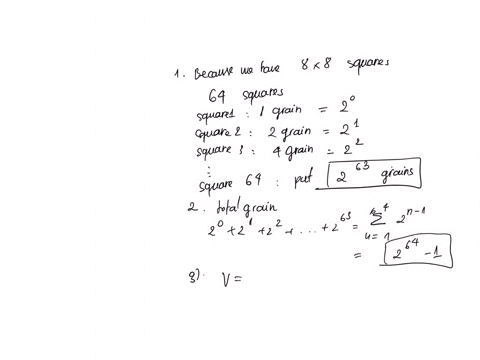 1. Because we have 8 x 8 squares
64 squares
square1 : 1 grain = 2^0
square 2 : 2 grain = 2^1
square 3 : 4 grain = 2^2
⋮
square 64 : put 2^63 grains
2. total grain
2^0 + 2^1 + 2^2 + ... + 2^63 = Σ 2^(n-1)
n=1
= 2^64 - 1
3). V =